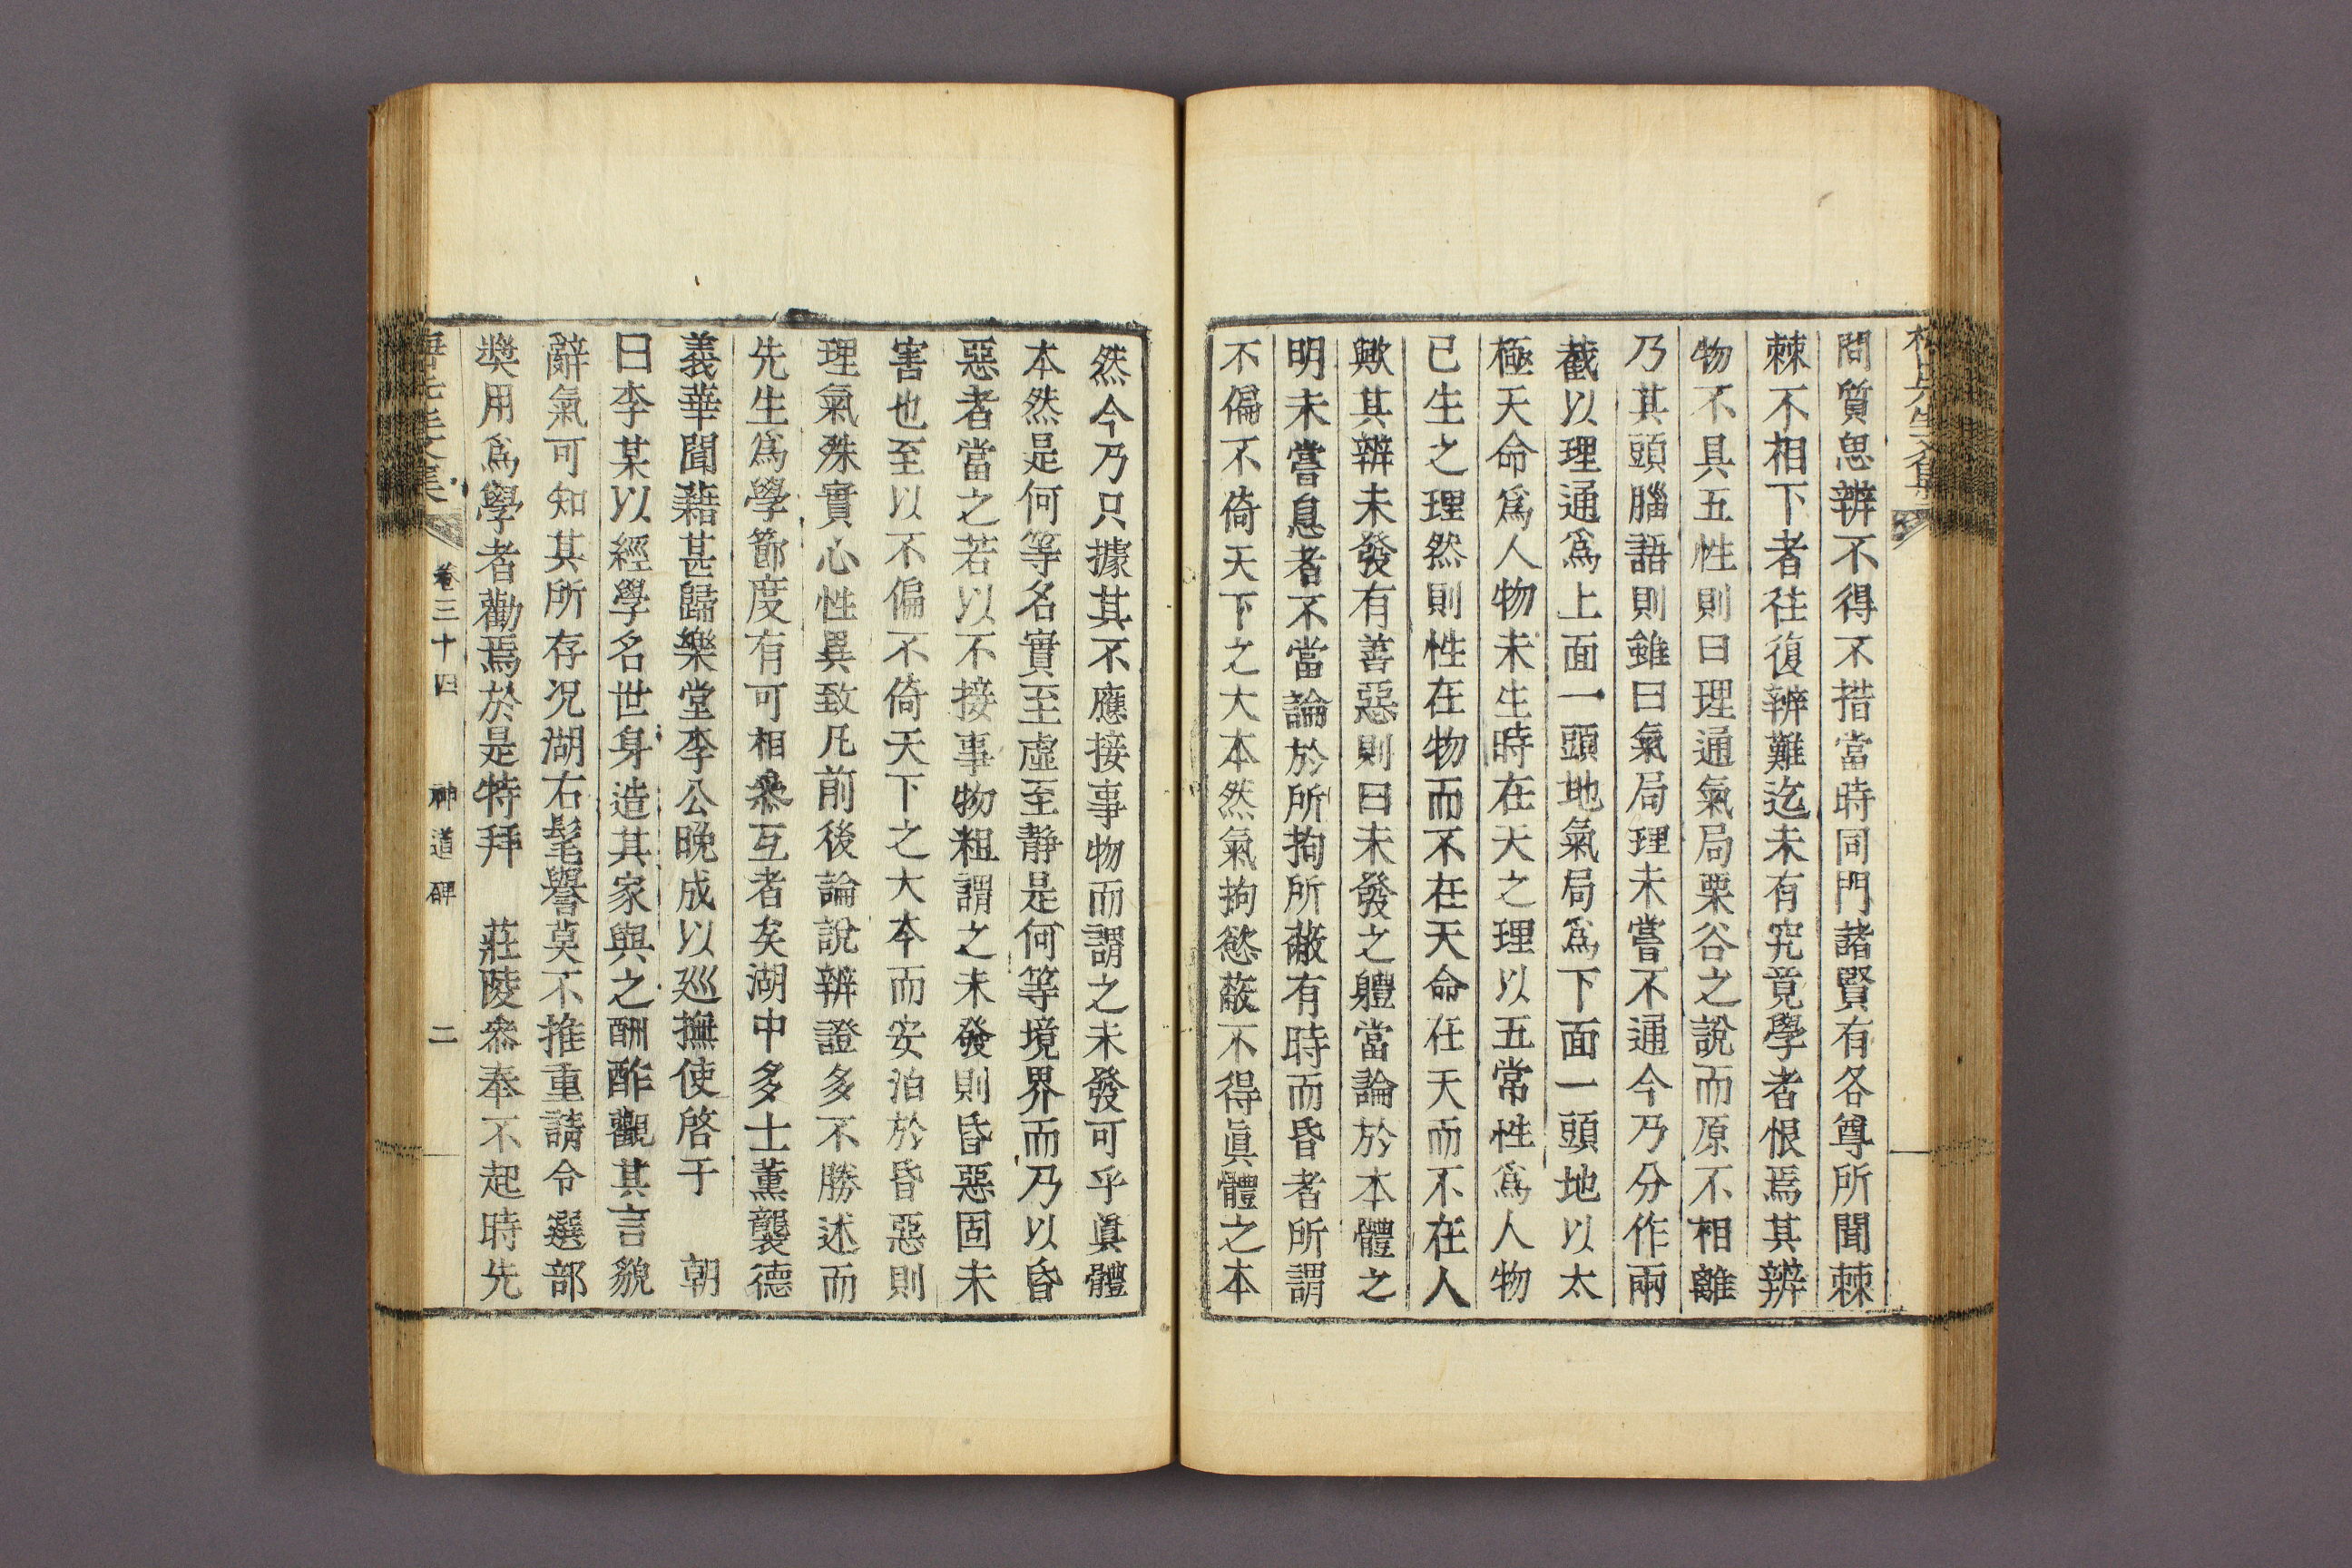 問質思辨不得不措當時同門諸賢有各尊所聞棘
棘不相下者往復辨難迄未有究竟學者恨焉其辨
物不具五性則曰理通氣局栗谷之說而原不相離
乃其頭腦語則雖曰氣局理未嘗不通今乃分作兩
截以理通爲上面一頭地氣局爲下面一頭地以太
極天命爲人物未生時在天之理以五常性爲人物
已生之理然則性在物而不在天命在天而不在人
歟其辨未發有善惡則曰未發之軆當論於本體之
明未嘗息者不當論於所拘所蔽有時而昏者所謂
不偏不倚天下之大本然氣拘慾蔽不得眞體之本
然今乃只據其不應接事物而謂之未發可乎眞體
本然是何等名實至虛至静是何等境界而乃以昏
惡者當之若以不接事物粗謂之未發則昏惡固未
害也至以不偏不倚天下之大本而安泊於昏惡則
理氣殊實心性異致凡前後論說辨證多不勝述而
先生爲學節度有可相叅互者矣湖中多士薰襲德
義華聞藉甚歸樂堂李公晩成以廵撫使啓于 朝
曰李某以經學名世身造其家與之酬酢觀其言貌
辭氣可知其所存况湖右髦譽莫不推重請令選部
奬用爲學者勸焉於是特拜 莊陵叅奉不起時先
卷三十四 神道碑 二